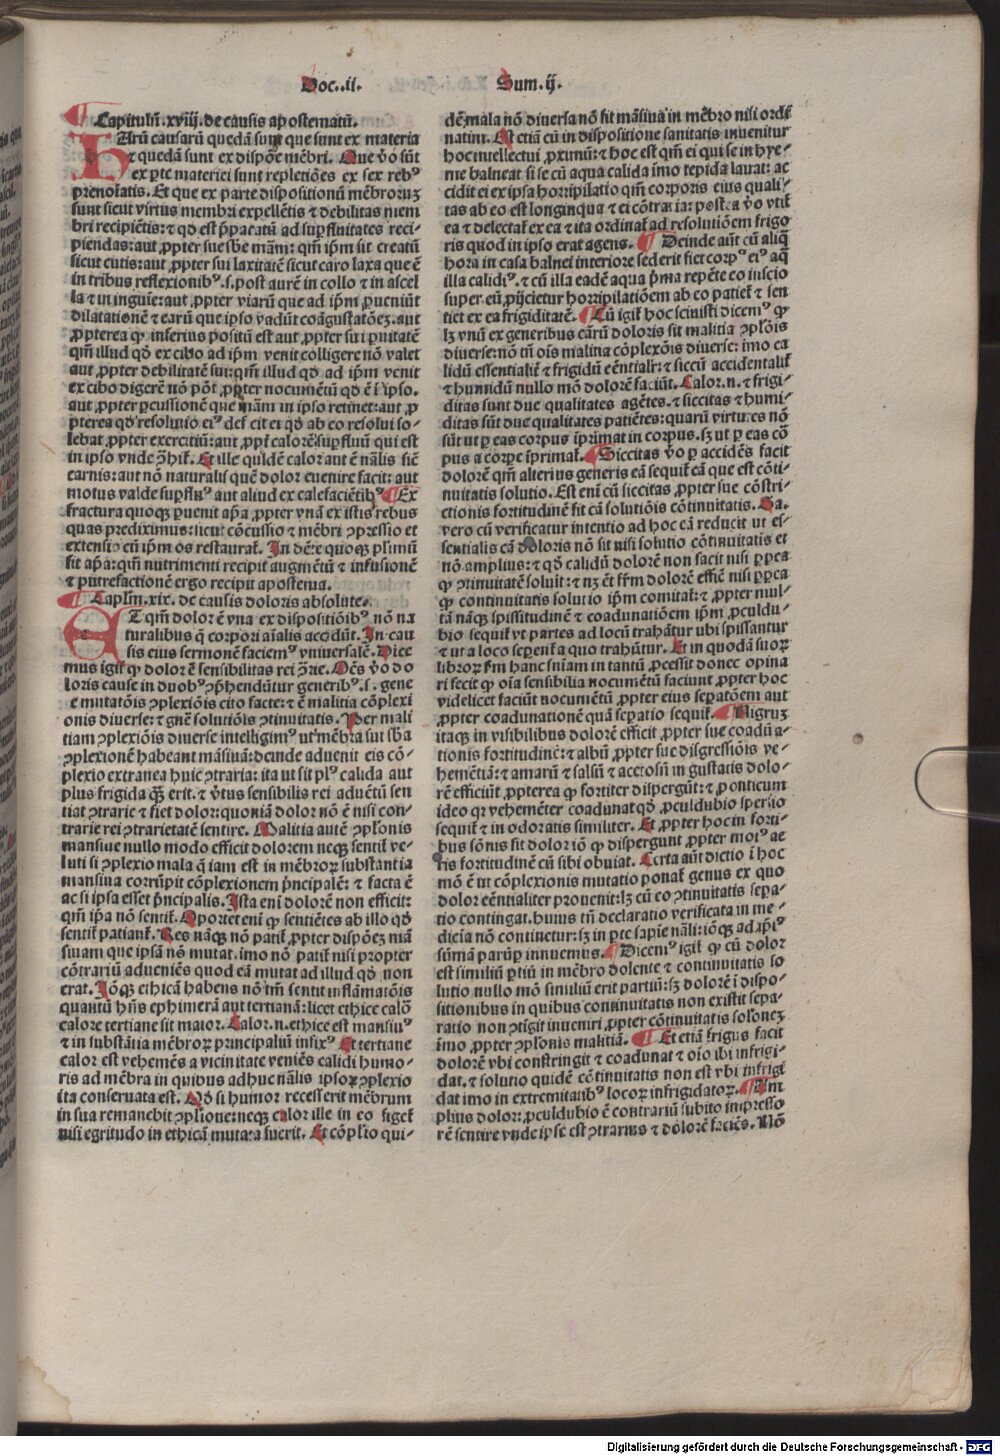 Doc. .ii. Sum. ij.
¶ Capitulũ .xviij. de causis apostematũ.
HArũ causarũ quedã sunt que sunt ex materia
⁊ quedã sunt ex dispõe mẽbri. Que ṽo sũt
ex pte materiei sunt repletiões ex sex rebꝰ
prenoiatis. Et que ex parte dispositionũ mẽbroruꝫ
sunt sicut virtus membri expellẽtis ⁊ debilitas mem
bri recipiẽtis: ⁊ qd est p̃paratũ ad suꝑfluitates reci-
piendas: aut ꝓpter sue sbe mãm: qm̃ ip̃m sit creatũ
sicut cutis: aut ꝓpter sui laxitatẽ sicut caro laxa que ẽ
in tribus reflexionibꝰ .s. post aurẽ in collo ⁊ in ascel
la ⁊ in inguie: aut ꝓpter viarũ que ad ip̃m ꝓueniũt
dilatationẽ ⁊ earũ que ipso vadũt coãgustatõeꝫ. aut
ꝓpterea ꝙ inferius positũ est aut ꝓpter sui puitatẽ
qm̃ illud qd̃ ex cibo ad ip̃m venit colligere nõ valet
aut ꝓpter debilitatẽ sui: qm̃ illud qd̃ ad ip̃m venit
ex cibo digerẽ nõ põt ꝓpter nocumẽtũ qd̃ ẽ ĩ ipso.
aut ꝓpter ꝑcussionẽ que mãm in ipso retinet: aut ꝓ
pterea qd̃ resolutio eiꝰ defi cit ei qd̃ ab eo resolui so-
lebat ꝓpter exercitiũ: aut ꝓpt̃ calorẽ suꝑfluũ qui est
in ipso vnde ꝓhibet̃. Et ille quidẽ calor aut ẽ nãlis sic̃
carnis: aut nõ naturalis quẽ dolor euenire facit: aut
motus valde suꝑfluꝰ aut aliud ex calefaciẽtibꝰ ¶ Ex
fractura quoqꝫ ꝑuenit ap̃a ꝓpter vnã ex istis rebus
quas prediximus: sicut cõcussio ⁊ mẽbri ꝯpressio et
extensio cũ ip̃m os restaurat̃. In dẽte quoqꝫ pl̃imũ
fit ap̃a: qm̃ nutrimenti recipit augmẽtũ ⁊ infusionẽ
⁊ putrefactionẽ ergo recipit apostema.
¶ Caplm̃ .xix. de causis doloris absolute.
ET qm̃ dolor ẽ vna ex dispositiõibꝰ nõ na
turalibus q̃ corpori aĩalis accidũt. In cau
sis eius sermonẽ faciemꝰ vniuersalẽ. Dice
mus igit̃ ꝙ dolor ẽ sensibilitas rei ꝯ̃rie. Oẽs ṽo do
loris cause in duobꝰ ꝯp̃hendũtur generibꝰ .s. gene
e mutatõis ꝯplexiõis cito facte: ⁊ ẽ malitia cõplexi
onis diuerse: ⁊ gnẽ solutiõis ꝯtinuitatis. Per mali
tiam ꝯplexiõis diuerse intelligimꝰ ut mẽbra sui sb̃a
ꝯplexionẽ habeant mãsiuã: deinde adueniit eis cõ-
plexio extranea huic ꝯtraria: ita ut sit plꝰ calida aut
plus frigida q̃ꝫ erit. ⁊ ṽtus sensibilis rei aduẽtũ sen
tiat ꝯtrarie ⁊ fiet dolor: quoniã dolor nõ ẽ nisi con-
trarie rei ꝯtrarietatẽ sentire. Malitia autẽ ꝯplõnis
mansiue nullo modo efficit dolorem neqꝫ sentit̃ ve-
luti si ꝯplexio mala q̃ iam est in mẽbroꝝ substantia
mansiua corrũpit cõplexionem p̃ncipalẽ: ⁊ facta ẽ
ac si ipsa esset p̃ncipalis. Ista enĩ dolorẽ non efficit:
qm̃ ip̃a nõ sentit̃. Oportet enĩ ꝙ sentiẽtes ab illo qd̃
sentit̃ patiant̃. Res nãqꝫ nõ patit̃ ꝓpter dispõeꝫ mã
siuam que ipsã nõ mutat. imo nõ patit̃ nisi propter
cõtrariũ adueniẽs quod eã mutat ad illud qd̃ non
erat. Iõqꝫ ethicã habens nõ tm̃ sentit inflãmatõis
quantũ hñs ephimerã aut tertianã: licet ethice calo᷒
calore tertiane sit maior. Calor .n. ethice est mansiuꝰ
⁊ in substãtia mẽbroꝝ principaliũ infixꝰ Et tertiane
calor est vehemẽs a vicinitate veniẽs calidi humo-
ris ad mẽbra in quibus adhuc nãlis ipsoꝝ ꝯplexio
ita conseruata est. Qd̃ si humor recesserit mẽbrum
in sua remanebit ꝯplione: neqꝫ calor ille in eo figet̃
nisi egritudo in ethicã mutata fuerit. Et cõplio qui-
dẽ mala nõ diuersa nõ fit mãsiua in mẽbro nisi ordi
natim. Est etiã cũ in dispositione sanitatis inuenitur
hoc intellectui ꝓximũ: ⁊ hoc est qm̃ ei qui se in hye-
me balneat si se cũ aqua calida imo tepida lauat: ac
cidit ei ex ipsa horripilatio qm̃ corporis eius quali-
tas ab eo est longinqua ⁊ ei cõtraria: postea ṽo vtit̃
ea ⁊ delectat̃ ex ea ⁊ ita ordinat̃ ad resolutiõem frigo
ris quod in ipso erat agens. ¶ Deinde aũt cũ aliq̃
hora in casa balnei interiore sederit fiet corpꝰ eiꝰ aq̃
illa calidiꝰ. ⁊ cũ illa eadẽ aqua p̃ma repẽte eo inscio
super eũ ꝓijcietur horripilatiõem ab eo patiet̃ ⁊ sen
tiet ex ea frigiditatẽ. ¶ Cũ igit̃ hoc sciuisti dicemꝰ ꝙ
lꝫ vnũ ex generibus cãrũ doloris sit malitia ꝯplõis
diuerse: nõ tñ oĩs malitia cõplexõis diuerse: imo ca
lidũ essentialit̃ ⁊ frigidũ eẽntialit̃: ⁊ siccũ accidentalit̃
⁊ humidũ nullo mõ dolorẽ faciũt. Calor .n. ⁊ frigi-
ditas sunt due qualitates agẽtes. ⁊ siccitas ⁊ humi-
ditas sũt due qualitates patiẽtes: quarũ virtutes nõ
sũt ut ꝑ eas corpus ĩprimat in corpus. sꝫ ut ꝑ eas cõ
pus a corpe ĩprimat̃. ¶ Siccitas ṽo ꝑ accidẽs facit
dolorẽ qm̃ alterius generis cã sequit̃ eã que est cõti-
nuitatis solutio. Est enĩ cũ siccitas ꝓpter sue cõstri-
ctionis fortitudinẽ fit cã solutiõis cõtinuitatis. Ga.
vero cũ verificatur intentio ad hoc eã reducit ut es-
sentialis cã doloris nõ sit nisi solutio cõtinuitatis et
nõ amplius: ⁊ qd̃ calidũ dolorẽ non facit nisi ꝓp̃ea
ꝙ ꝯtinuitatẽ soluit: ⁊ nꝫ ẽt fr̃m dolorẽ effic̃ nisi ꝓp̃ca
ꝙ continuitatis solutio ip̃m comitat̃: ⁊ ꝓpter mul-
tã nãqꝫ spissitudinẽ ⁊ coadunatiõem ip̃m ꝓculdu-
bio sequit̃ vt partes ad locũ trahãtur ubi spissantur
⁊ ut a loco seꝑent̃ a quo trahũtur. Et in quodã suoꝝ
libroꝝ fm̃ hanc sniam in tantũ ꝓcessit donec opina
ri fecit ꝙ oĩa sensibilia nocumẽtũ faciunt ꝓpter hoc
videlicet faciũt nocumẽtũ ꝓpter eius seꝑatõem aut
ꝓpter coadunationẽ quã seꝑatio sequit̃. ¶ Nigruꝫ
itaqꝫ in visibilibus dolorẽ efficit ꝓpter sue coadũa-
tionis fortitudinẽ: ⁊ albũ ꝓpter sue disgressiõis ve-
hemẽtiã: ⁊ amarũ ⁊ salsũ ⁊ acetosũ in gustatis dolo-
rẽ efficiũt ꝓpterea ꝙ fortiter dispergũt: ⁊ ponticum
ideo qꝛ vehemẽter coadunat qd̃ ꝓculdubio sꝑersio
sequit̃ ⁊ in odoratis similiter. Et ꝓpter hoc in forti-
bus sõnis sit dolor iõ ꝙ dispergunt ꝓpter motꝰ ae
ris fortitudinẽ cũ sibi obuiat. Certa aũt dictio ĩ hoc
mõ ẽ ut cõplexionis mutatio ponat̃ genus ex quo
dolor eẽntialiter prouenit: lꝫ cũ eo ꝯtinuitatis seꝑa-
tio contingat. huius tñ declaratio verificata in me-
dicĩa nõ continetur: sꝫ in ꝑte sapiẽ nãli: iõqꝫ ad ip̃iꝰ
sũmã parũꝑ innuemus. ¶ Dicemꝰ igit̃ ꝙ cũ dolor
est similiũ ptiũ in mẽbro dolente ⁊ continuitatis so
lutio nullo mõ similiũ erit partiũ: sꝫ dolorẽ ĩ dispo-
sitionibus in quibus continuitatis non existit seꝑa-
ratio non ꝯtigit inueniri ꝓpter cõtinuitatis solonẽꝫ
ĩmo ꝓpter ꝯplõnis malitiã. ¶ Et etiã frigus facit
dolorẽ vbi constringit ⁊ coadunat ⁊ oĩo ibi infrigi-
dat. ⁊ solutio quidẽ cõtinuitatis non est vbi infrigi
dat imo in extremitatibꝰ locoꝝ infrigidatoꝝ. ¶ Am
plius dolor: ꝓculdubio ẽ contrariũ subito impresso
rẽ sentire vnde ipse est ꝯtrarius ⁊ dolorẽ faciẽs. Nõ
Digitalisierung gefördert durch die Deutsche Forschungsgemeinschaft - DFG